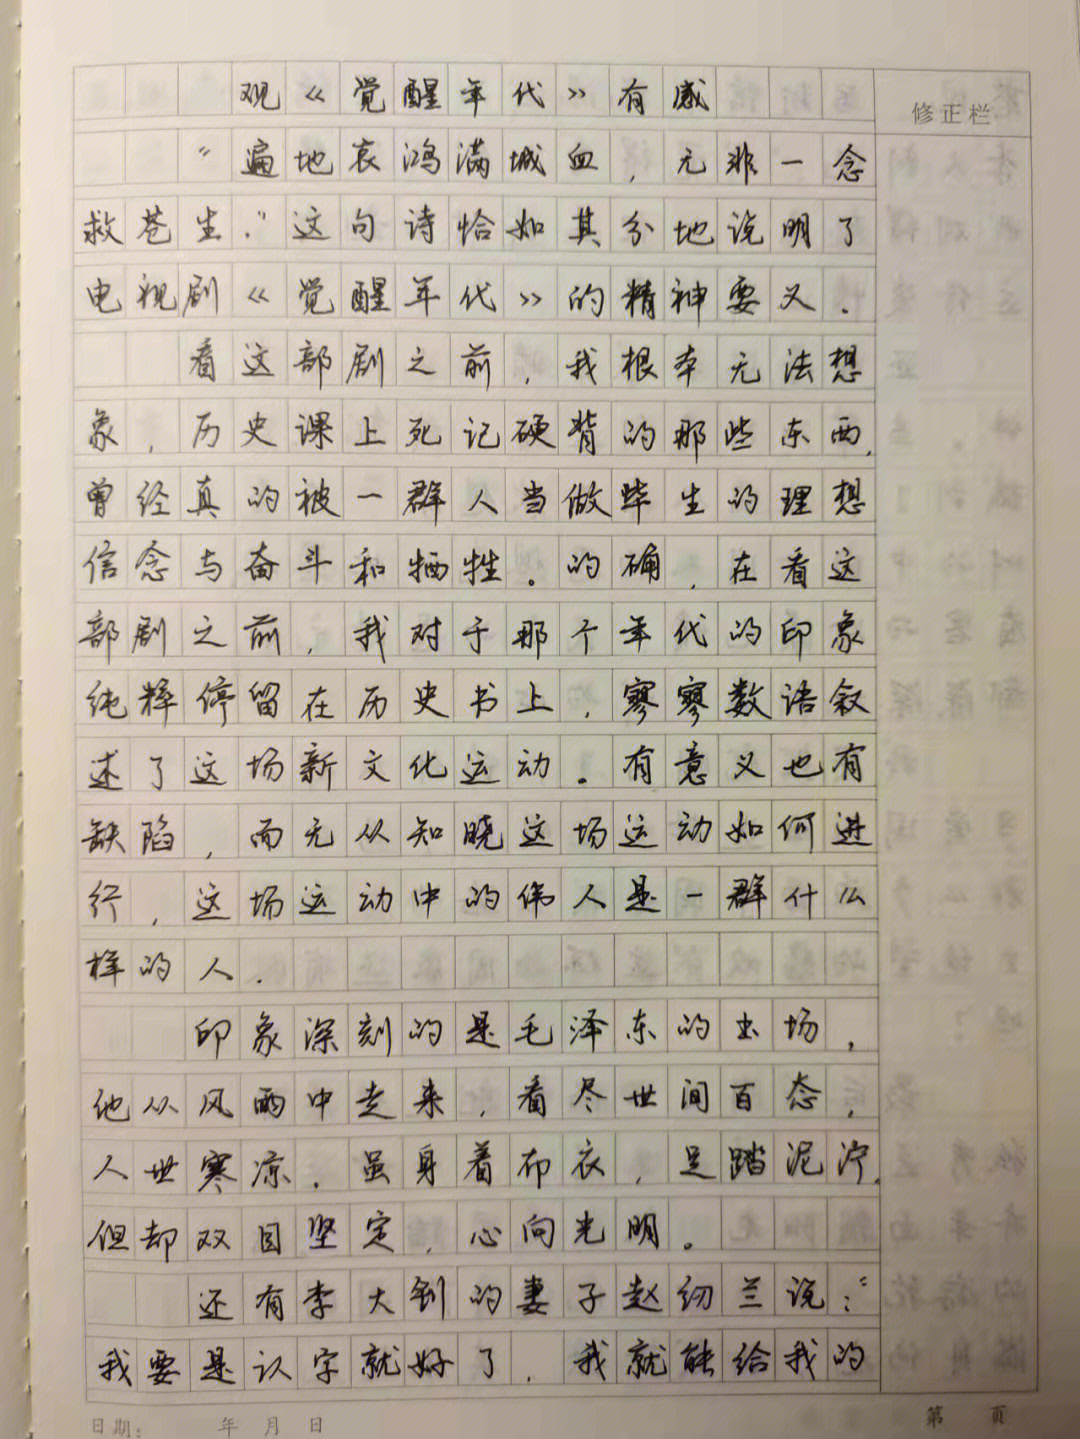 观《觉醒年代》有感
修正栏
“遍地哀鸿满城血，无非一念
救苍生.”这句诗恰如其分地说明了
电视剧《觉醒年代》的精神要义.
看这部剧之前，我根本无法想
象，历史课上死记硬背的那些东西，
曾经真的被一群人当做毕生的理想
信念与奋斗和牺牲。的确，在看这
部剧之前，我对于那个年代的印象
纯粹停留在历史书上，寥寥数语叙
述了这场新文化运动。有意义也有
缺陷，而无从知晓这场运动如何进
行，这场运动中的伟人是一群什么
样的人.
印象深刻的是毛泽东的出场，
他从风雨中走来，看尽世间百态，
人世寒凉.虽身着布衣，足踏泥泞，
但却双目坚定，心向光明。
还有李大钊的妻子赵纫兰说：“
我要是认字就好了，我就能给我的
日期： 年 月 日
第 页